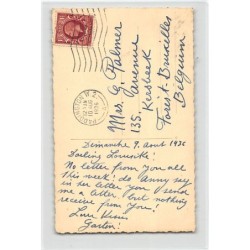 Mrs. G. Palmer
135. Avenue
Kersbeek
Forest-Bruxelles
Belgium
Dimanche 9. Aout 1936
Darling
No letter from you all
this week! do Fanny say
in her letter you send
me a letter, but nothing
receive from you!
Love Kisses
Gaston!